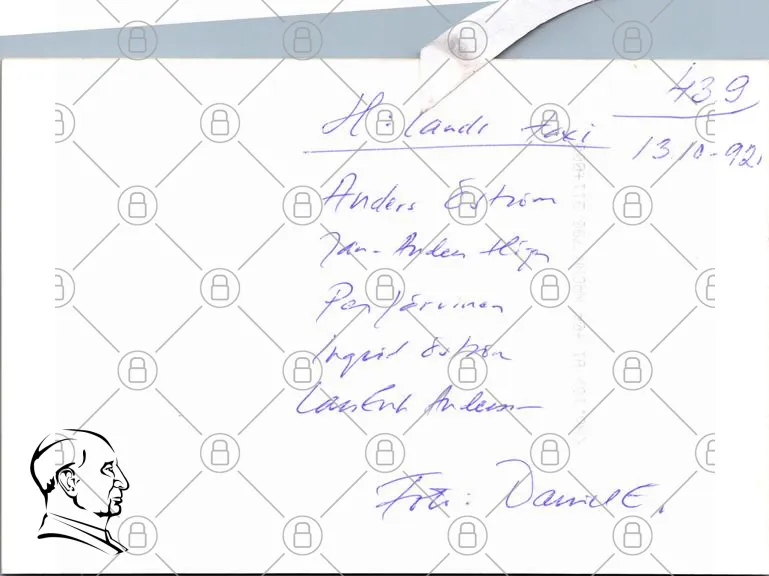 439
Ålands taxi
13/10-92.
Anders Öström
Jan-Anders
Per Järvinen
Ingrid Öström
Lars Erik Andersson
Foto: Daniel E.